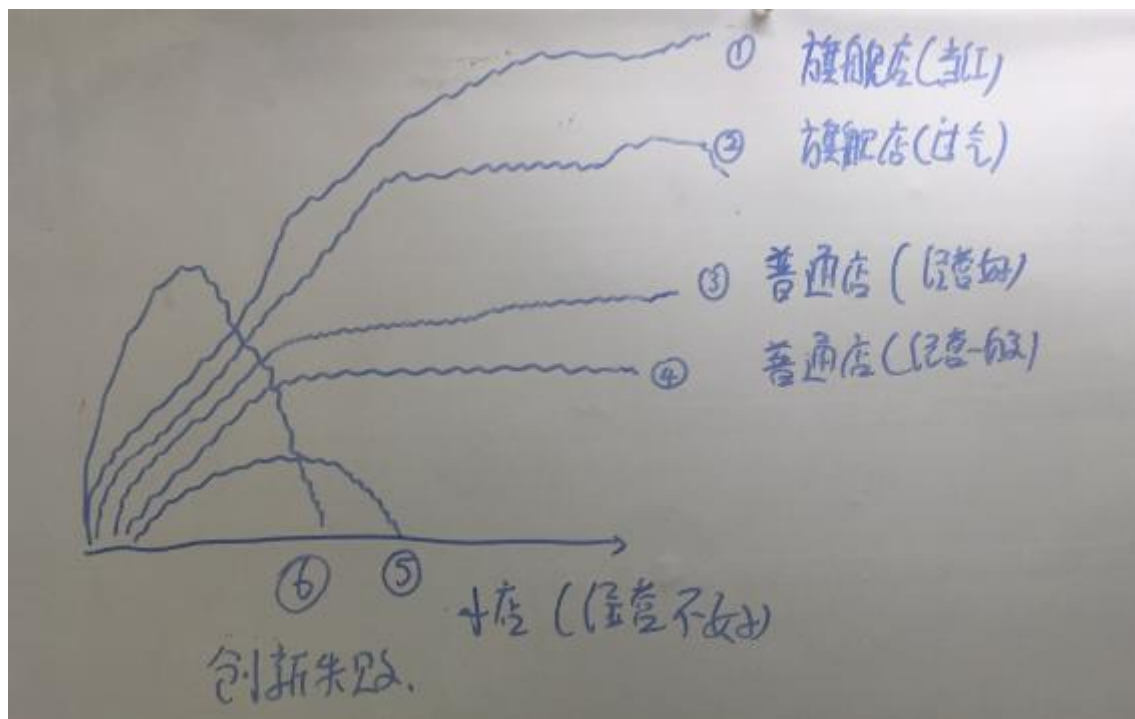 ① 旗舰店(当红)
② 旗舰店(过气)
③ 普通店(经营好)
④ 普通店(经营一般)
⑥ ⑤ 小店(经营不好)
创新失败.